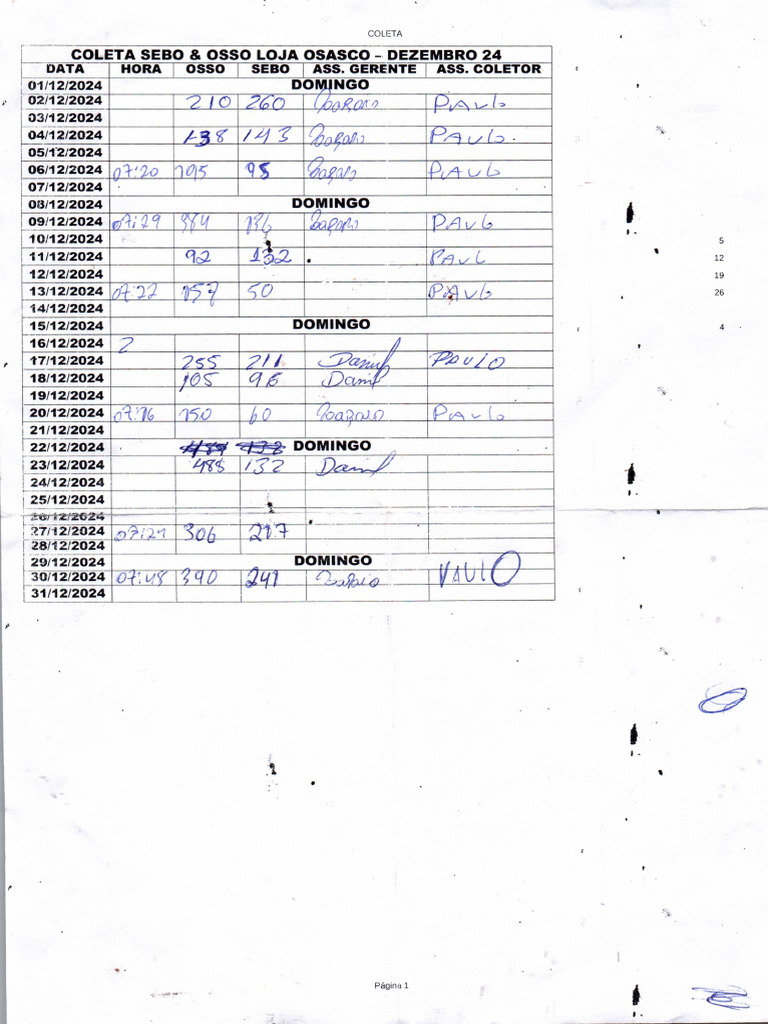 COLETA
COLETA SEBO & OSSO LOJA OSASCO – DEZEMBRO 24
DATA HORA OSSO SEBO ASS. GERENTE ASS. COLETOR
01/12/2024 DOMINGO
02/12/2024 210 260 PAULO
03/12/2024
04/12/2024 138 143 PAULO
05/12/2024
06/12/2024 07:20 105 95 PAULO
07/12/2024
08/12/2024 DOMINGO
09/12/2024 07:29 384 136 PAULO
10/12/2024
5
11/12/2024 92 132 PAUL
12
12/12/2024
19
13/12/2024 07:22 157 50 PAULO
26
14/12/2024
15/12/2024 DOMINGO
4
16/12/2024 2
17/12/2024 255 211 Daniel PAULO
18/12/2024 105 96 Daniel
19/12/2024
20/12/2024 07:16 150 60 PAULO
21/12/2024
22/12/2024 DOMINGO
23/12/2024 488 132 Daniel
24/12/2024
25/12/2024
26/12/2024
27/12/2024 07:21 306 217
28/12/2024
29/12/2024 DOMINGO
30/12/2024 07:48 390 241 PAULO
31/12/2024
Página 1